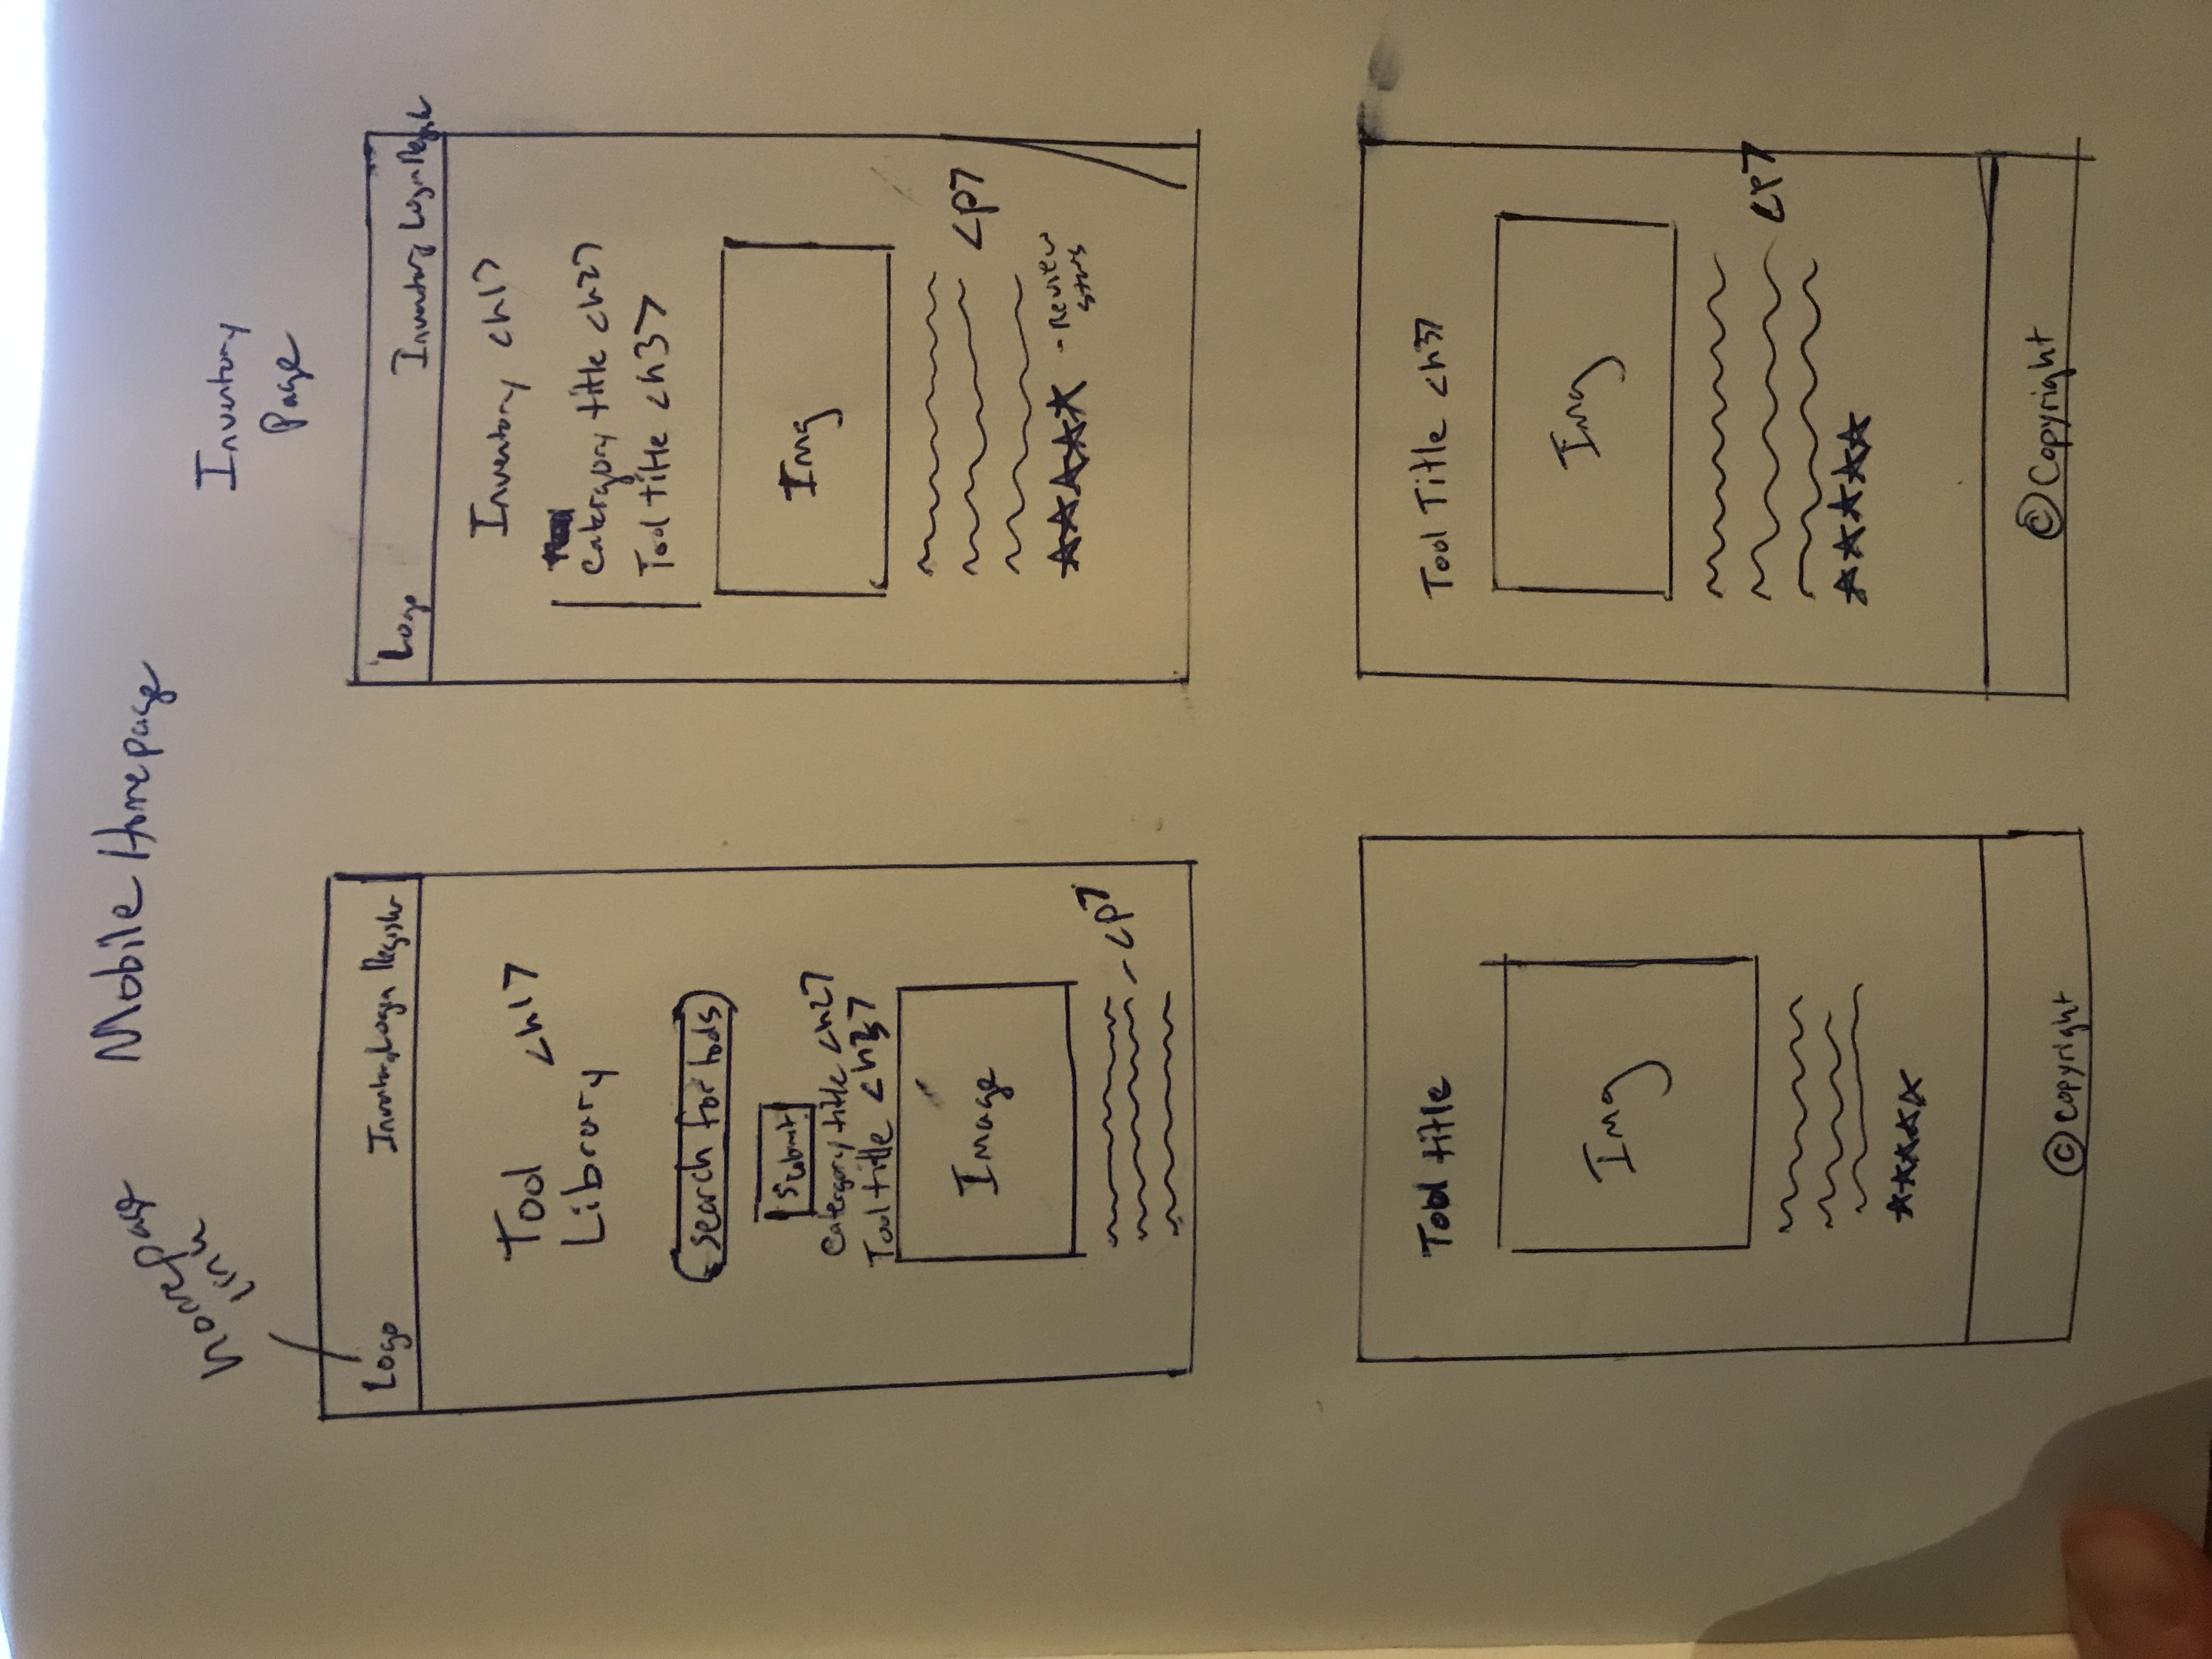 Mobile Homepage
homepage
link
Logo Inventory Login Register
Tool <h1>
Library
search for tools
Submit
Catergory title <h2>
Tool title <h3>
Image
<p>
Inventory
Page
Logo Inventory Login Register
Inventory <h1>
Catergory title <h2>
Tool title <h3>
Img
<p>
- Review
stars
Tool title
Img
© copyright
Tool Title <h3>
Img
<p>
© Copyright